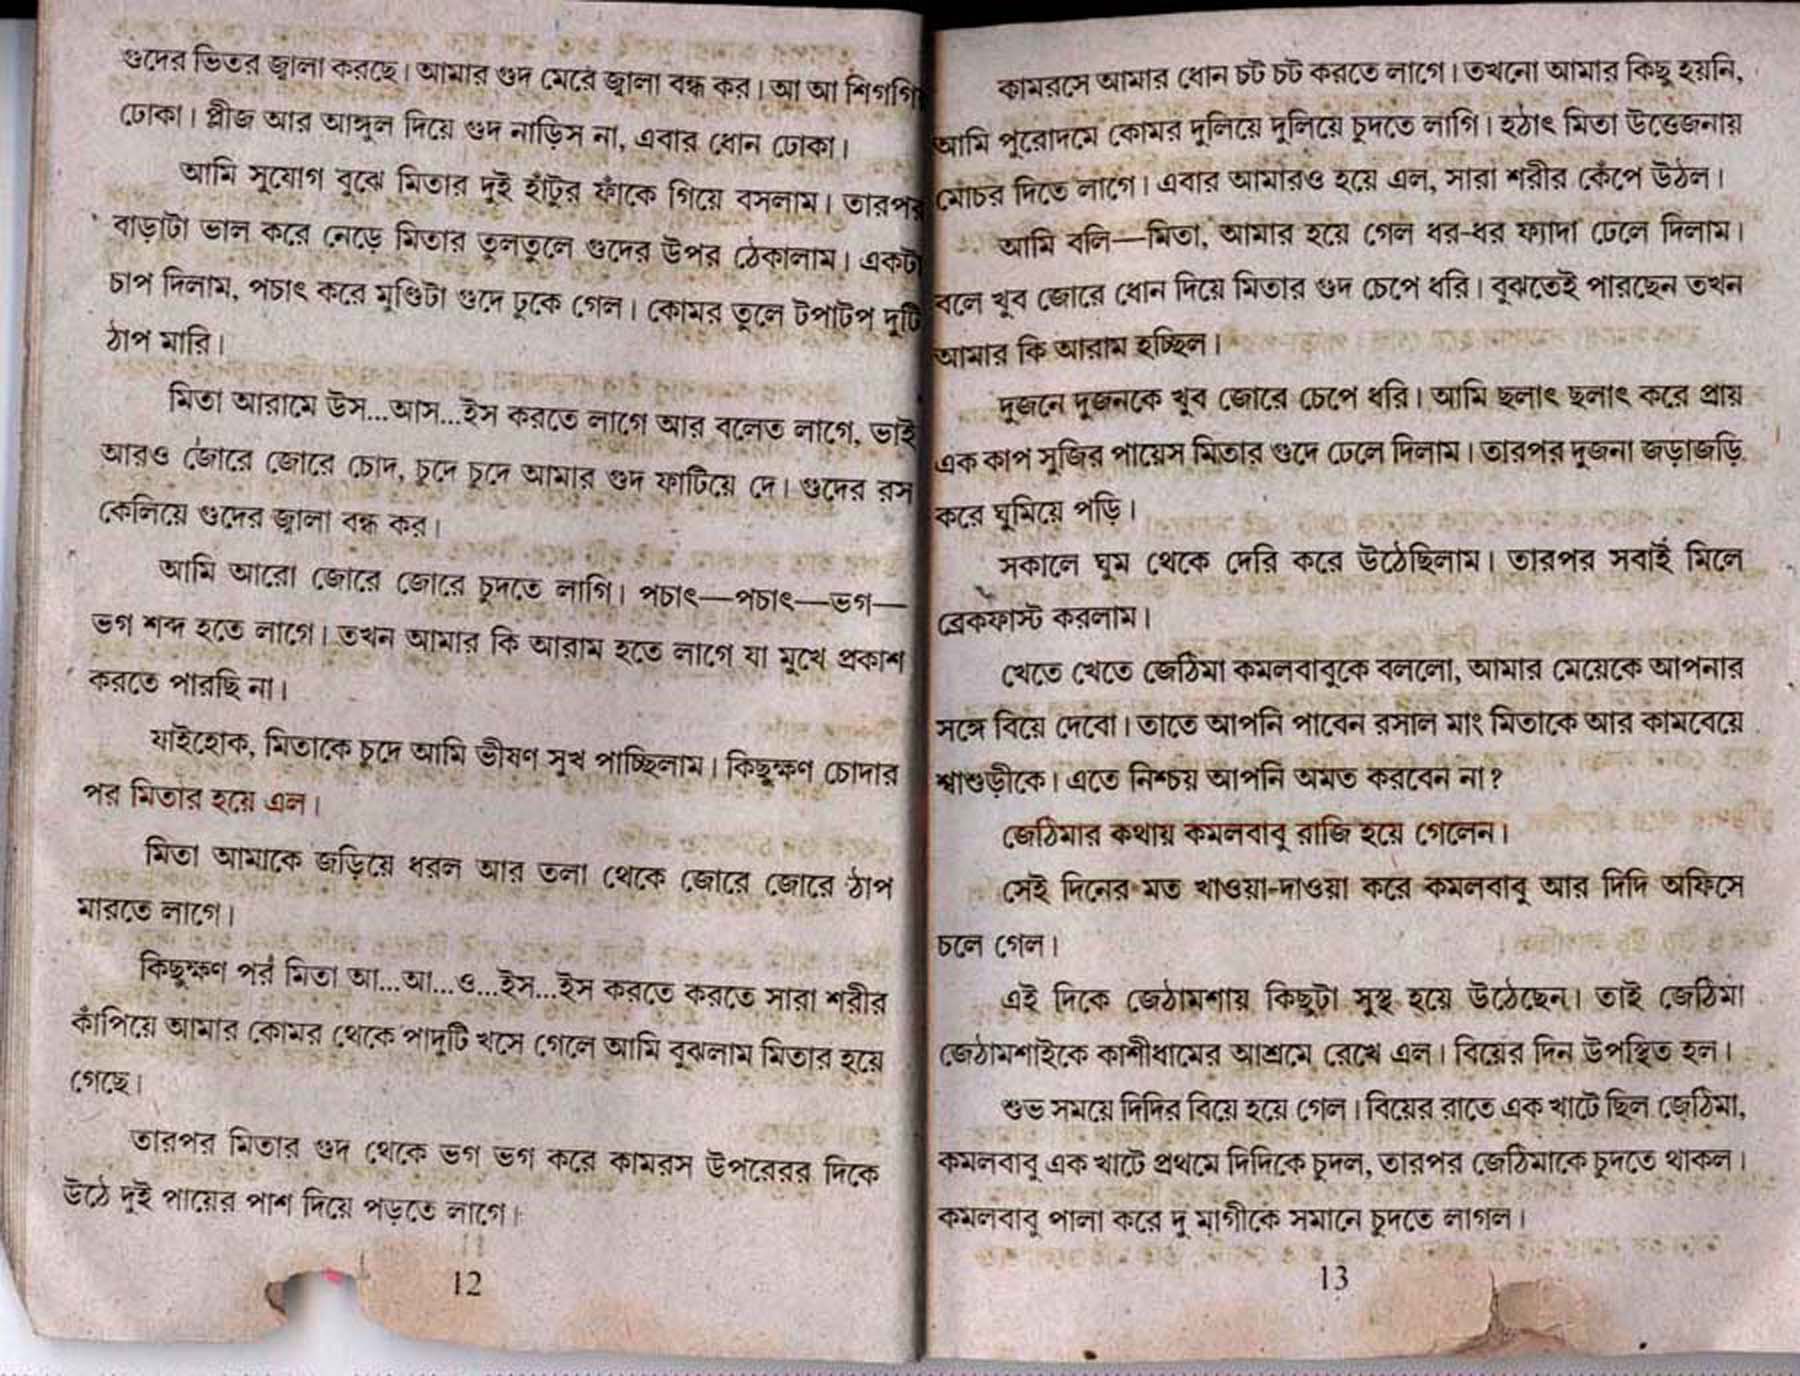 গুদের ভিতর জ্বালা করছে। আমার গুদ মেরে জ্বালা বন্ধ কর। আ আ শিগগি
ঢোকা। প্লীজ আর আঙ্গুল দিয়ে গুদ নাড়িস না, এবার ধোন ঢোকা।
আমি সুযোগ বুঝে মিতার দুই হাঁটুর ফাঁকে গিয়ে বসলাম। তারপর
বাড়াটা ভাল করে নেড়ে মিতার তুলতুলে গুদের উপর ঠেকালাম। একটা
চাপ দিলাম, পচাৎ করে মুণ্ডিটা গুদে ঢুকে গেল। কোমর তুলে টপাটপ দুটি
ঠাপ মারি।
মিতা আরামে উস...আস...ইস করতে লাগে আর বলেত লাগে, ভাই
আরও জোরে জোরে চোদ, চুদে চুদে আমার গুদ ফাটিয়ে দে। গুদের রস
কেলিয়ে গুদের জ্বালা বন্ধ কর।
আমি আরো জোরে জোরে চুদতে লাগি। পচাৎ—পচাৎ—ভগ—
ভগ শব্দ হতে লাগে। তখন আমার কি আরাম হতে লাগে যা মুখে প্রকাশ
করতে পারছি না।
যাইহোক, মিতাকে চুদে আমি ভীষণ সুখ পাচ্ছিলাম। কিছুক্ষণ চোদার
পর মিতার হয়ে এল।
মিতা আমাকে জড়িয়ে ধরল আর তলা থেকে জোরে জোরে ঠাপ
মারতে লাগে।
কিছুক্ষণ পর মিতা আ...আ...ও...ইস...ইস করতে করতে সারা শরীর
কাঁপিয়ে আমার কোমর থেকে পাদুটি খসে গেলে আমি বুঝলাম মিতার হয়ে
গেছে।
তারপর মিতার গুদ থেকে ভগ ভগ করে কামরস উপরেরর দিকে
উঠে দুই পায়ের পাশ দিয়ে পড়তে লাগে।
12
কামরসে আমার ধোন চট চট করতে লাগে। তখনো আমার কিছু হয়নি,
আমি পুরোদমে কোমর দুলিয়ে দুলিয়ে চুদতে লাগি। হঠাৎ মিতা উত্তেজনায়
মোচর দিতে লাগে। এবার আমারও হয়ে এল, সারা শরীর কেঁপে উঠল।
আমি বলি—মিতা, আমার হয়ে গেল ধর-ধর ফ্যাদা ঢেলে দিলাম।
বলে খুব জোরে ধোন দিয়ে মিতার গুদ চেপে ধরি। বুঝতেই পারছেন তখন
আমার কি আরাম হচ্ছিল।
দুজনে দুজনকে খুব জোরে চেপে ধরি। আমি ছলাৎ ছলাৎ করে প্রায়
এক কাপ সুজির পায়েস মিতার গুদে ঢেলে দিলাম। তারপর দুজনা জড়াজড়ি
করে ঘুমিয়ে পড়ি।
সকালে ঘুম থেকে দেরি করে উঠেছিলাম। তারপর সবাই মিলে
ব্রেকফাস্ট করলাম।
খেতে খেতে জেঠিমা কমলবাবুকে বললো, আমার মেয়েকে আপনার
সঙ্গে বিয়ে দেবো। তাতে আপনি পাবেন রসাল মাং মিতাকে আর কামবেয়ে
শ্বাশুড়ীকে। এতে নিশ্চয় আপনি অমত করবেন না?
জেঠিমার কথায় কমলবাবু রাজি হয়ে গেলেন।
সেই দিনের মত খাওয়া-দাওয়া করে কমলবাবু আর দিদি অফিসে
চলে গেল।
এই দিকে জেঠামশায় কিছুটা সুস্থ হয়ে উঠেছেন। তাই জেঠিমা
জেঠামশাইকে কাশীধামের আশ্রমে রেখে এল। বিয়ের দিন উপস্থিত হল।
শুভ সময়ে দিদির বিয়ে হয়ে গেল। বিয়ের রাতে এক খাটে ছিল জেঠিমা,
কমলবাবু এক খাটে প্রথমে দিদিকে চুদল, তারপর জেঠিমাকে চুদতে থাকল।
কমলবাবু পালা করে দু মাগীকে সমানে চুদতে লাগল।
13